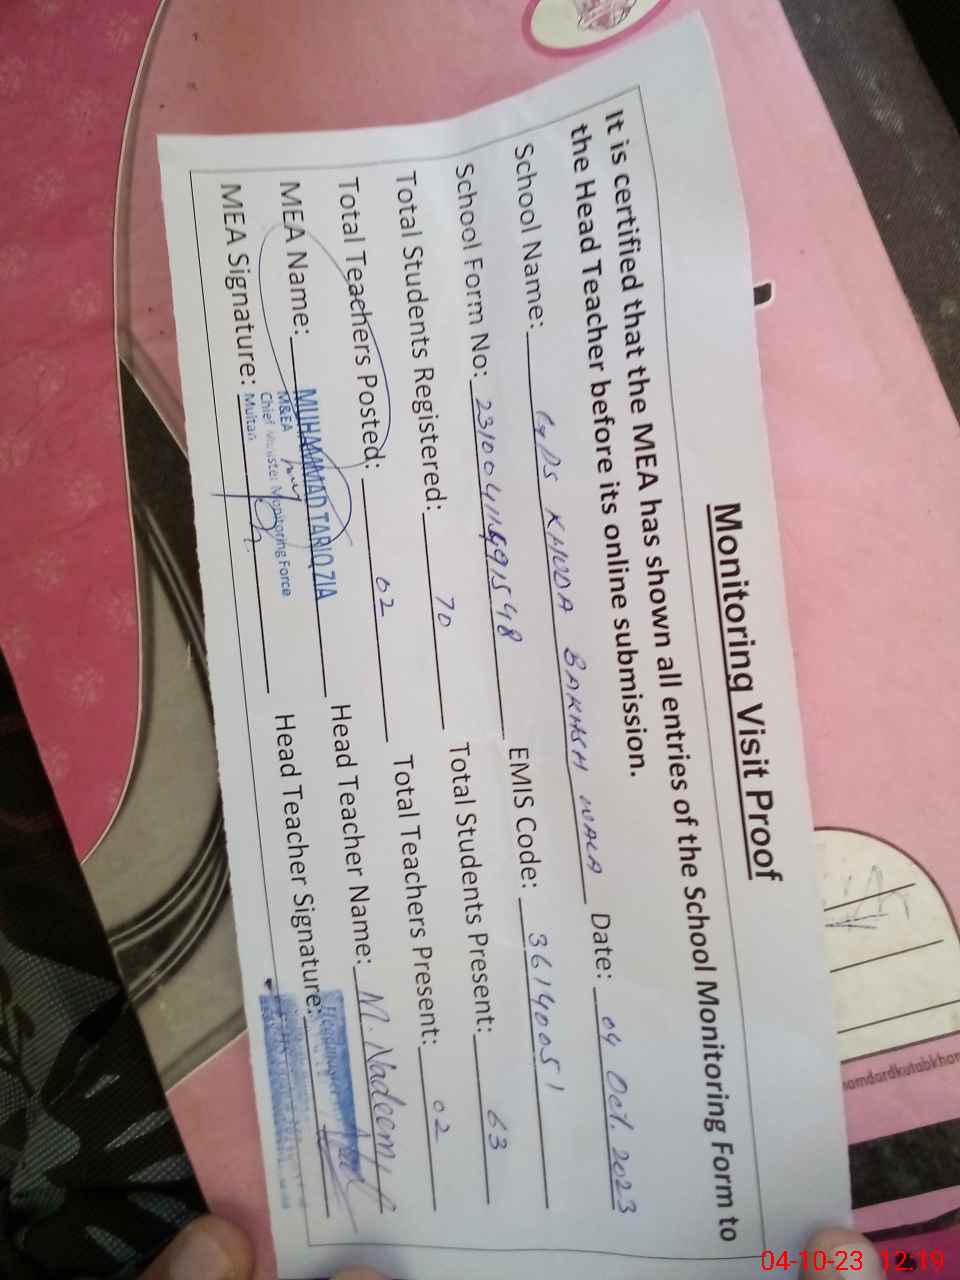 Monitoring Visit Proof
It is certified that the MEA has shown all entries of the School Monitoring Form to
the Head Teacher before its online submission.
School Name: GPS KHUDA BAKHSH WALA Date: 04 Oct. 2023
School Form No: EMIS Code: 36140051
Total Students Registered: 70 Total Students Present: 63
Total Teachers Posted: 02 Total Teachers Present: 02
MEA Name: MUHAMMAD TARIQ ZIA Head Teacher Name: M. Nadeem
M&EA
Chief Minister Monitoring Force
Multan
MEA Signature: Head Teacher Signature:
hamdardkutabkhan
04-10-23 12:19